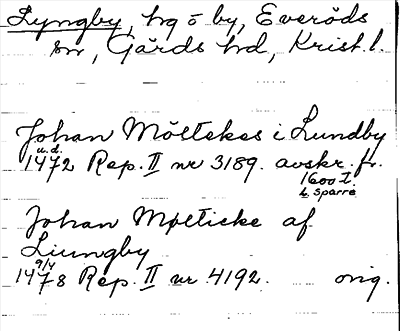 Lyngby, hg o by, Everöds
sn, Gärds hd, Krist. l.
Johan Möltekes i Lundby
u.d.
1472 Rep. II nr 3189. avskr. fr.
1600 t.
L. Sparre
Johan Mølticke af
Liungby
9/4
1478 Rep. II nr 4192. orig.